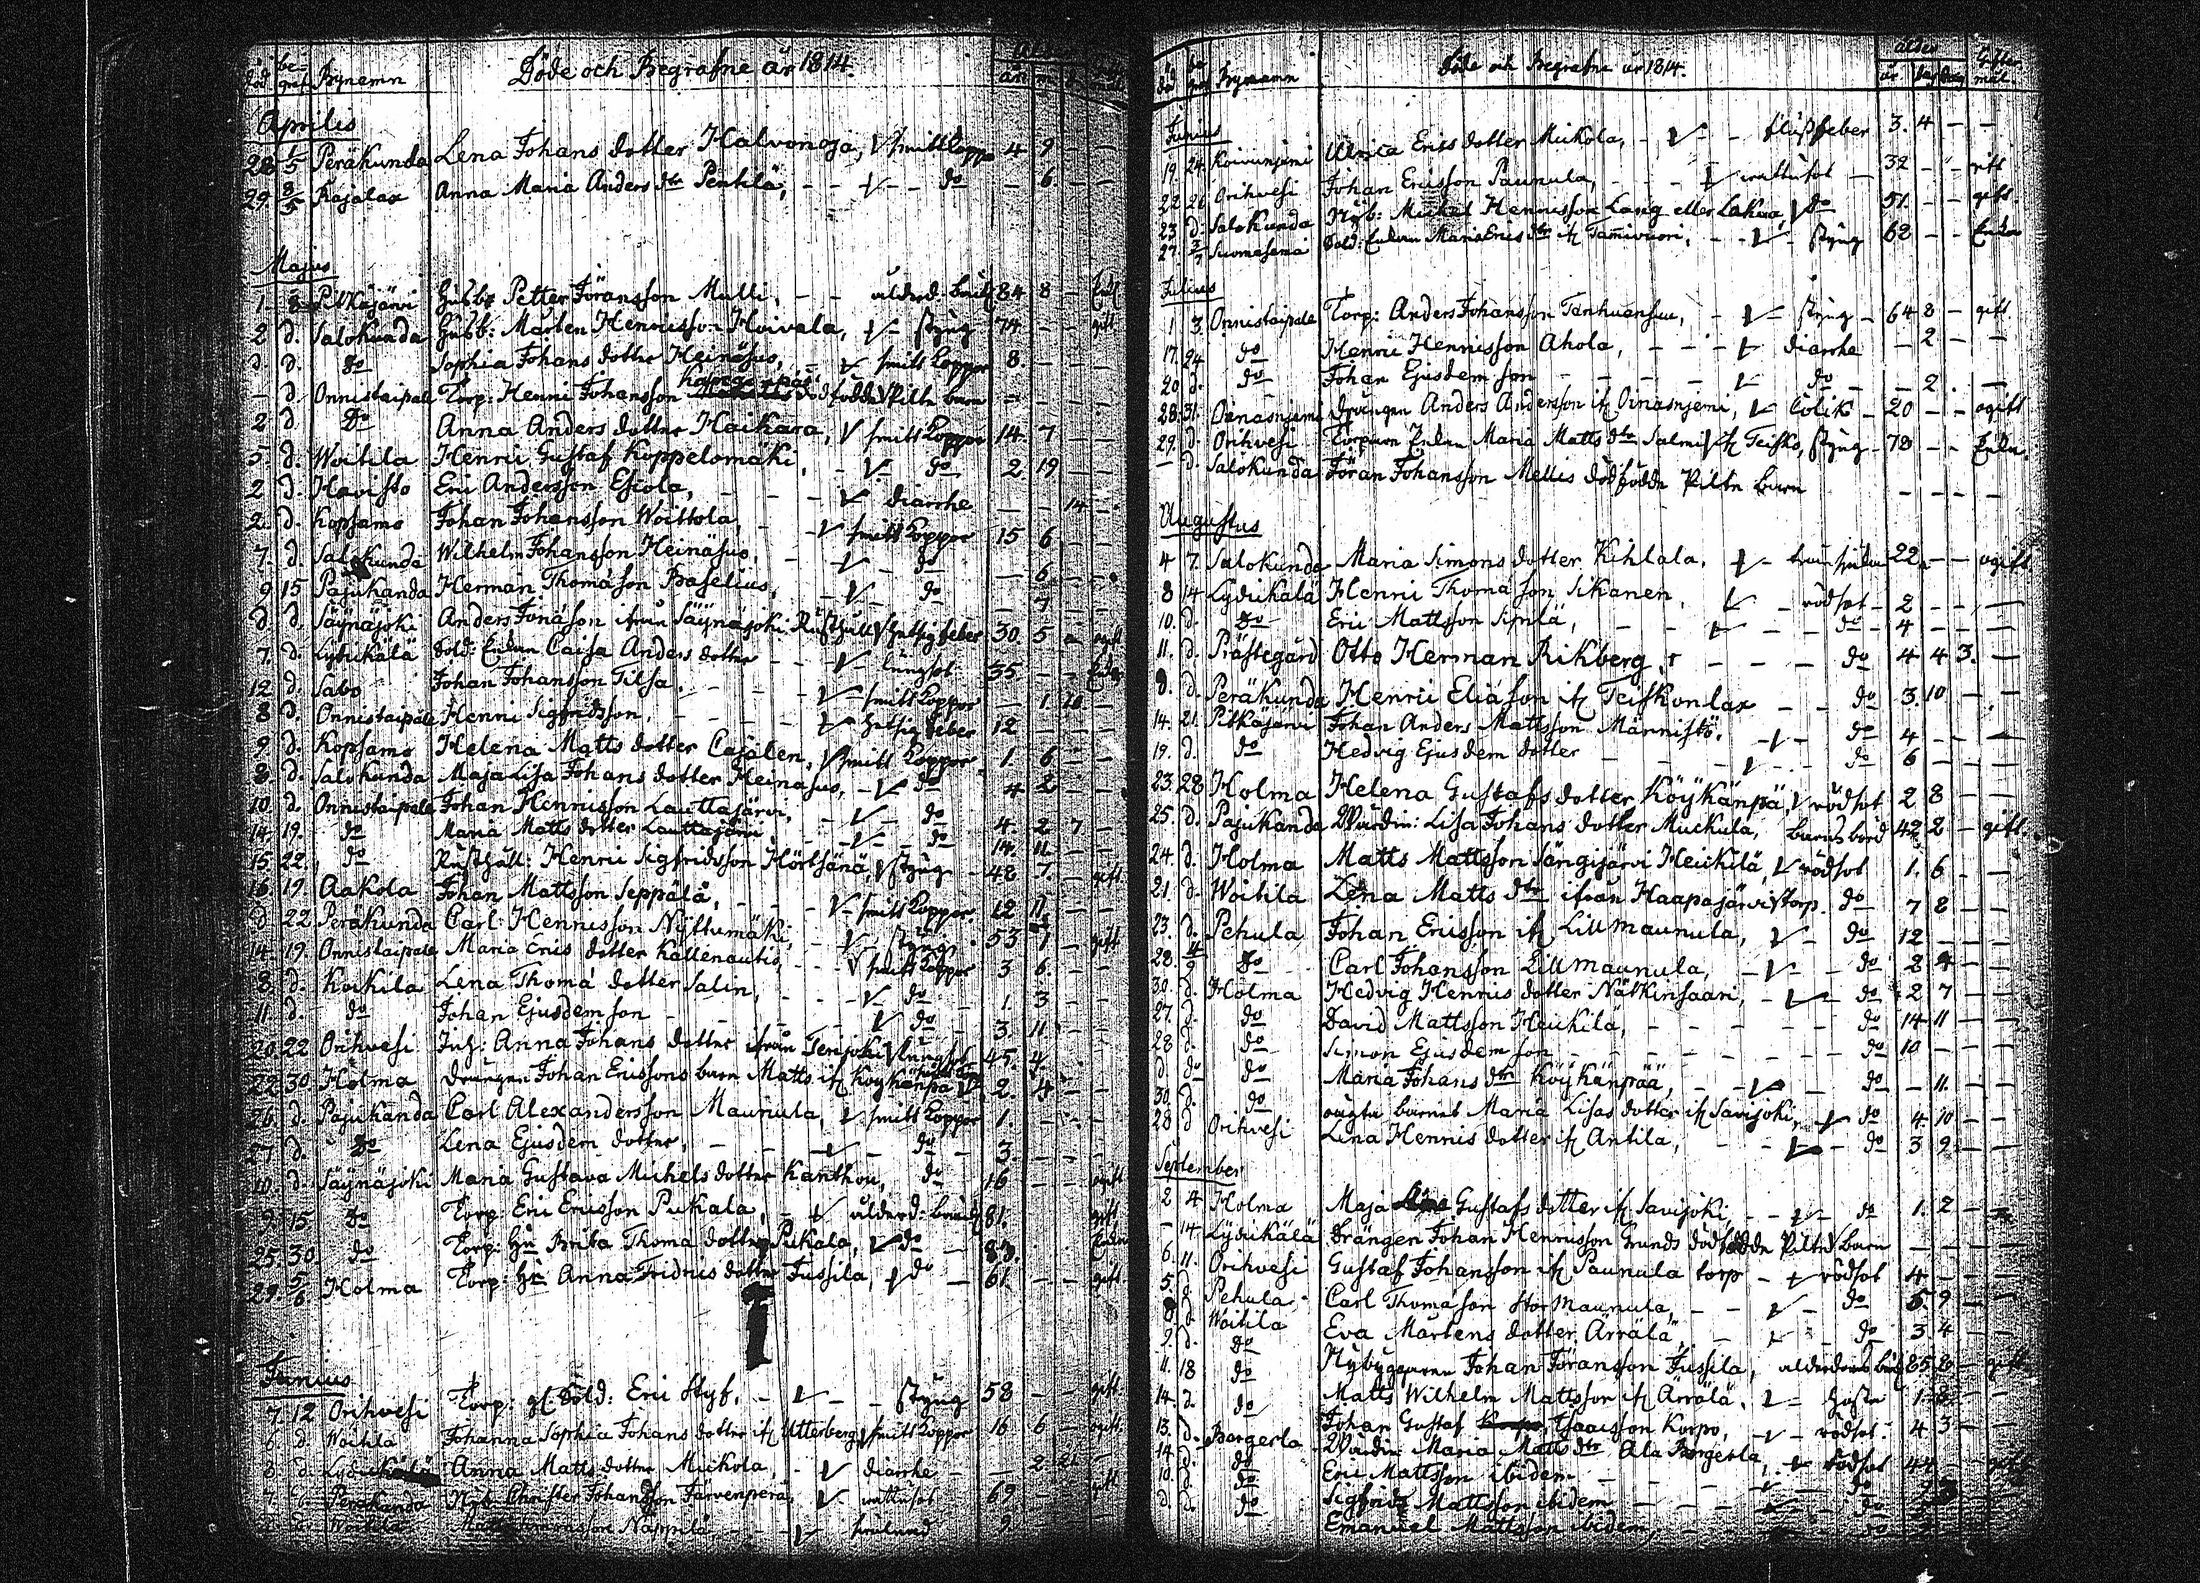 död be-graf Bynamn Döde och Begrafne år 1814. år m.
Aprilis
28 1/5 Peräkunda Lena Johans dotter Halvonoja, smittkoppor 4 9 - -
29 8/5 Rajalax Anna Maria Anders dtr Penttilä, - - do - 6. - -
Majus
1. 8. Pitkäjärvi Gubb: Petter Jöransson Mulli, - - ålderd: bräckl 84 8 - Enkl
2 d. Salokunda Gubb: Mårten Henricsson Hoivala, - styng 74. - - gift
d. d. do Sophia Johans dotter Heinäsuo, - smittkoppor 8. - -
- d Onnistaipale Torp: Henric Johansson dödfödde Piltn barn - - -
2 d do Anna Anders dotter Haikara, smittkoppor 14. 7 - -
5. d. Woitila Henric Gustaf Koppelomäki, - do 2. 19. - -
2 d. Havisto Eric Andersson Eskola, - - - diarrhe - - 14. -
2. d. Kopsamo Johan Johansson Woittola, - smittkoppor 15 6 - -
7. d. Salokunda Wilhelm Johansson Heinäsuo, - do - 6. - -
9 15 Pajukanda Herman Thomæson Baselius, - do - 7 - -
d. d. Säynäjoki Anders Jonæson ifrån Säynäjoki Rusthåll hetsig feber 30. 5 - ogift
7. d. Lyðikälä Sold: Enkan Caisa Anders dotter - - lungsot 35 - - Enka
12 d. Sabo Johan Johansson Tilsa. - - smittkoppor - 1. 10 -
8 d. Onnistaipale Henric Sigfridsson, - - hetsig feber 12 - - -
9. d. Kopsamo Helena Matts dotter Cajalen, smittkoppor 1. 6 - -
8. d. Salokunda Maja Lisa Johans dotter Heinäsuo, - do 4 2 - -
10. d. Onnistaipale Johan Henricsson Lauttajärvi, - do 4. 2 7 -
14. 19. do Maria Matts dotter Lauttajärvi, - do 14. 11 - -
15. 22. do Rusthåll: Henric Sigfridsson Hörtsänä, styng 48 7. - gift
16. 19. Aakola Johan Mattsson Seppälä, - - smittkoppor 12 11 - -
d 22. Peräkunda Carl Henricsson Nyttumäki, - styng 53 7 - gift
14. 19. Onnistaipale Maria Erics dotter Kallenautio, - smittkoppor 3 6. - -
8. d. Koikila Lena Thomæ dotter Salin, - - do 1. 3 - -
11. d. do Johan Ejusdem son - - do 3. 11 - -
20. 22 Orihvesi Anna Johans dotter ifrån lungsot 45. 4. -
22. 30. Holma Drängen Johan Ericssons barn Matts ifr Köykänpä 2. 4 - -
26. d. Pajukanda Carl Alexandersson Maunula, smittkoppor 1. - - -
27 d. do Lena Ejusdem dotter, - - do - 3. - - -
10. d. Säynäjoki Maria Gustava Michels dotter Kanthou, do 16 - - ogift
9. 15 do Torp: Eric Ericsson Pukala, - ålderd: bräckl 81. gift
25. 30. do Torp: Hu Brita Thomæ dotter Pukala, do - 83. Enka
29. 5/6 Holma Torp: Hu Anna Fridrics dotter Jussila, do - 61. - - gift
Junius
7. 12 Orihvesi Torp: gl Sold: Eric Styf, - - styng 58 - gift
6. d. Woitila Johanna Sophia Johans dotter ifr Utterberg, smittkoppor 16 6 - ogift
8. d. Lyðikälä Anna Matts dotter Mickola, - diarrhe - - 2 21 -
7. d. Peräkunda Nyb: Christer Johansson Järvenperä, - vattusot 69 - - gift
d. Woitila Näppilä, 9.
död be-graf Bynamn Döde och Begrafne år 1814. ålder år Gifter-mål
Junius
19. 24. Koivunjemi Ulrica Erics dotter Mickola, - - flussfeber 3. 4 - -
22 26 Orihvesi Johan Ericsson Paunula, - - vattusot - 32 - - gift
23 d. Salokunda Nyb: Mickel Henricsson Lang eller Lakua, do 51. - - gift.
27. 3/7 Suomasemä Sold: Enkan Maria Erics dtr ifr Tammivuori, - - styng 62 - - Enka
Julius
1 3. Onnistaipale Torp: Anders Johansson Tanhuansuu, - styng - 64 8 - gift
17. 24. do Henric Henricsson Ahola, - - - diarrhe - 2 - -
20 d. do Johan Ejusdem son - - - do - - 2. -
28. 31. Oinasnjemi Drängen Anders Andersson ifr Oinasnjemi, - Colik - 20 - - ogift
29. d. Orihvesi Torparn Enkan Maria Matts dtr Salmi ifr Teisko, styng - 78 - - Enka.
- d. Salokunda Jöran Johansson Mellis dödfödde Piltn barn - - - -
Augustus
4 7. Salokunda Maria Simons dotter Kihlala, - 22. - - ogift
8 14 Lyðikälä Henric Thomæson Sikanen, - rödsot - 2 - - -
10. d. do Eric Mattsson Sipilä, - - - do - 4 - - -
11. d. Prästegård Otto Herman Rikberg, - - - do 4 4 3. -
d. d. Peräkunda Henric Eliæson ifr Teiskonlax - - do 3. 10 - -
14. 21. Pitkäjärvi Johan Anders Mattsson Männistö, - do 4 - - -
19. d. do Hedvig Ejusdem dotter - - - do 6 - - -
23. 28 Holma Helena Gustafs dotter Köykänpä, rödsot 2 8 - -
25. d. Pajukanda Wärdin: Lisa Johans dotter Muckula, barnsbörd 42 2 - gift
24. d. Holma Matts Mattsson Sängijärvi Heickilä, rödsot 1. 6. - -
21. d. Woitila Lena Matts dtr ifrån Haapajärvi torp. do 7 8 - -
23. d. Pehula Johan Ericsson ifr Lillmaunula, - do 12 - - -
28. 4/9 do Carl Johansson Lillmaunula, - - do 2 4 - -
30. d. Holma Hedvig Henrics dotter Nätkinsaari, - do 2 7 - -
27. d. do David Mattsson Heickilä, - - - do 14 11 - -
28 d. do Simon Ejusdem son - - - do 10 - - -
d do do Maria Johans dtr Köykänpää, - - do - 11. - -
30. d. do oägta barnet Maria Lisas dotter ifr Savijoki, - do 4. 10 - -
28 d Orihvesi Lena Henrics dotter ifr Antila, - - do 3 9 - -
September
2 4 Holma Maja Gustafs dotter ifr Savijoki, - - do 1. 2 - -
- 14. Lyðikälä Drängen Johan Henricsson Grunds dödfödde Piltn barn - - - -
6. 11. Orihvesi Gustaf Johansson ifr Paunula torp - rödsot 4 - - -
5. d Pehula Carl Thomæson Stor Maunula, - - do 5. 9 - -
8 d. Woitila Eva Mårtens dotter Ärrälä, - - do 3 4 - -
9. d. do Nybyggaren Johan Jöransson Jussila, ålderdoms bräckl 85. 2 - gift
11. 18 do Matts Wilhelm Mattsson ifr Ärrälä, - hosta 1. 8. - -
14. d. do Johan Gustaf Isaacsson Korpo, - rödsot 4 3 - -
13. d. Bargerla Wärdin: Maria Matts dtr Ala Bargerla, - rödsot 44 - gift
14. d. do Eric Mattsson ibidem - - do 9
10. d. do Sigfrid Mattsson ibidem - - do
d. d. do Emanuel Mattsson ibidem, - - do